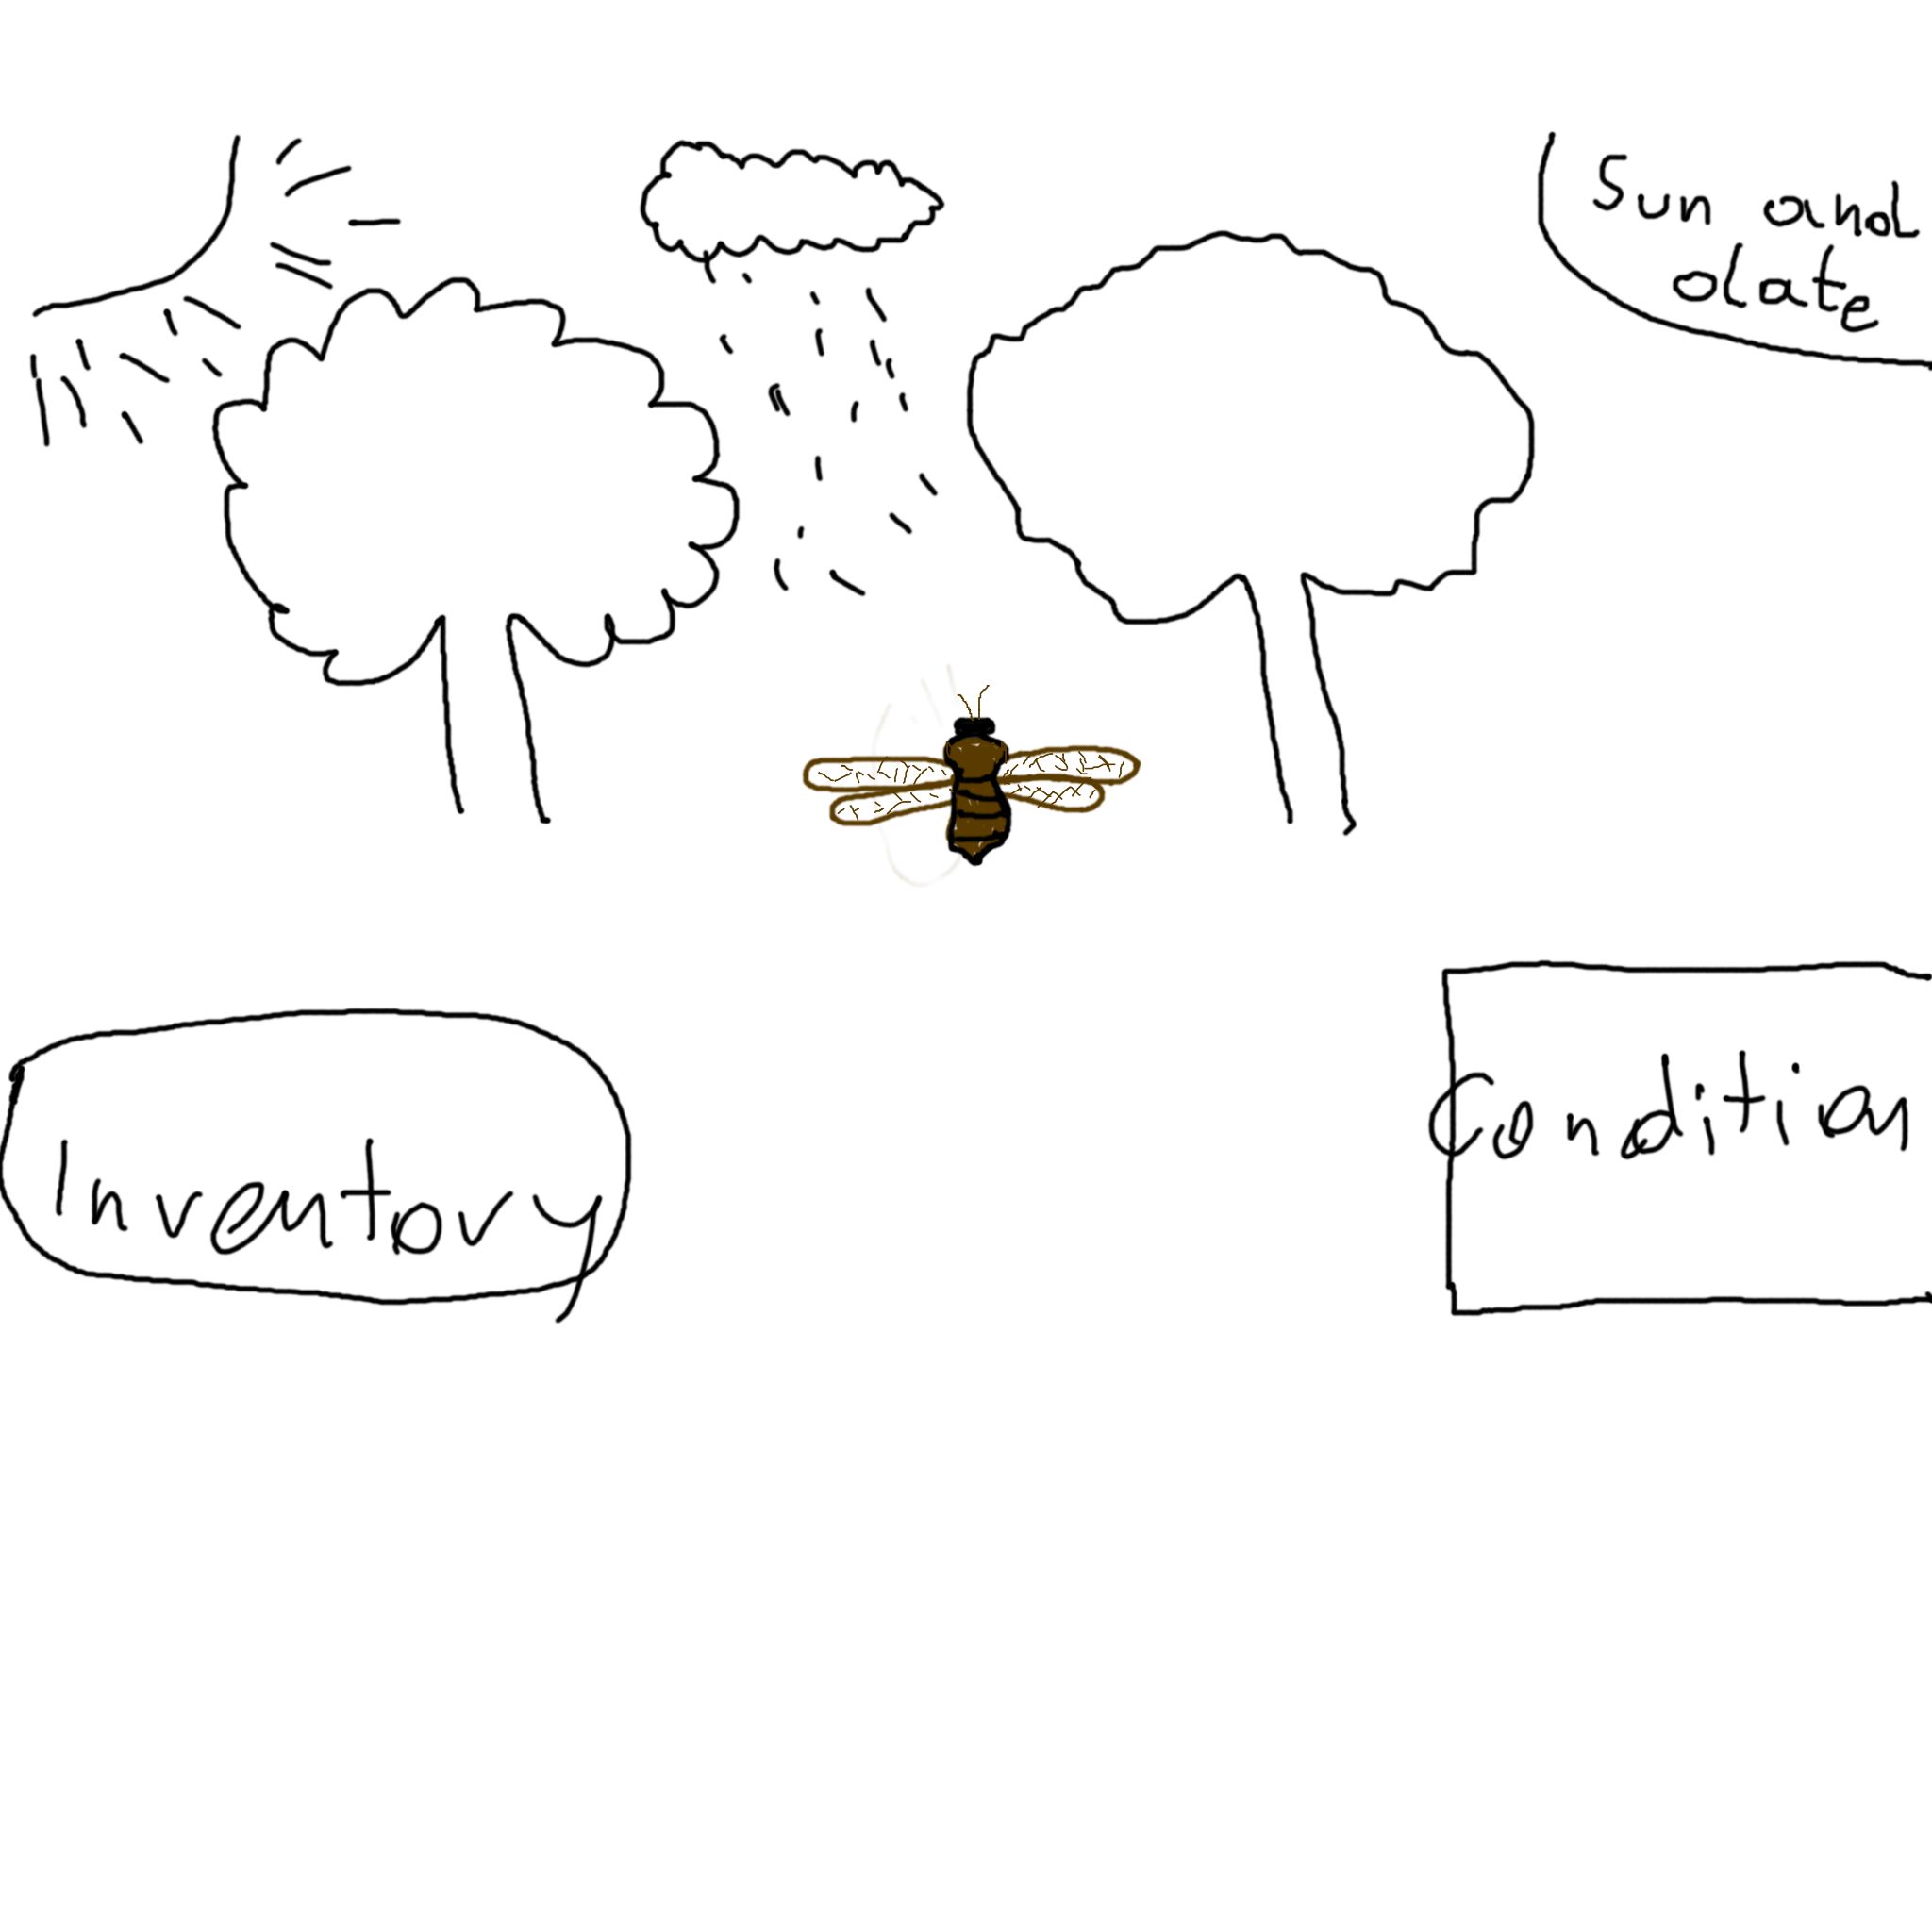 Sun and
date
Inventory
Condition